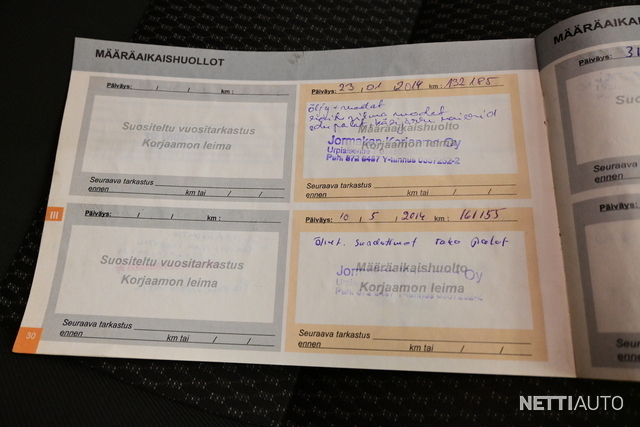 MÄÄRÄAIKAISHUOLLOT
Päiväys: / / km :
Suositeltu vuositarkastus
Korjaamon leima
Seuraava tarkastus
ennen km tai / /
Päiväys: 23 , 01 , 2014 km : 132185
öljy + suodat
Määräaikaishuolto
Oy
Puh.
Y-tunnus
Seuraava tarkastus
ennen km tai / /
III
Päiväys: / / km :
Suositeltu vuositarkastus
Korjaamon leima
Seuraava tarkastus
ennen km tai / /
Päiväys: 10 / 5 / 2014 km : 161155
Öljyt. suodattimet taka palat
Määräaikaishuolto
Oy
Korjaamon leima
Seuraava tarkastus
ennen km tai / /
30
MÄÄRÄAIKA
Päiväys: 31
Suo
Seuraava
ennen
Päiväys:
Seuraava
ennen
NETTIAUTO